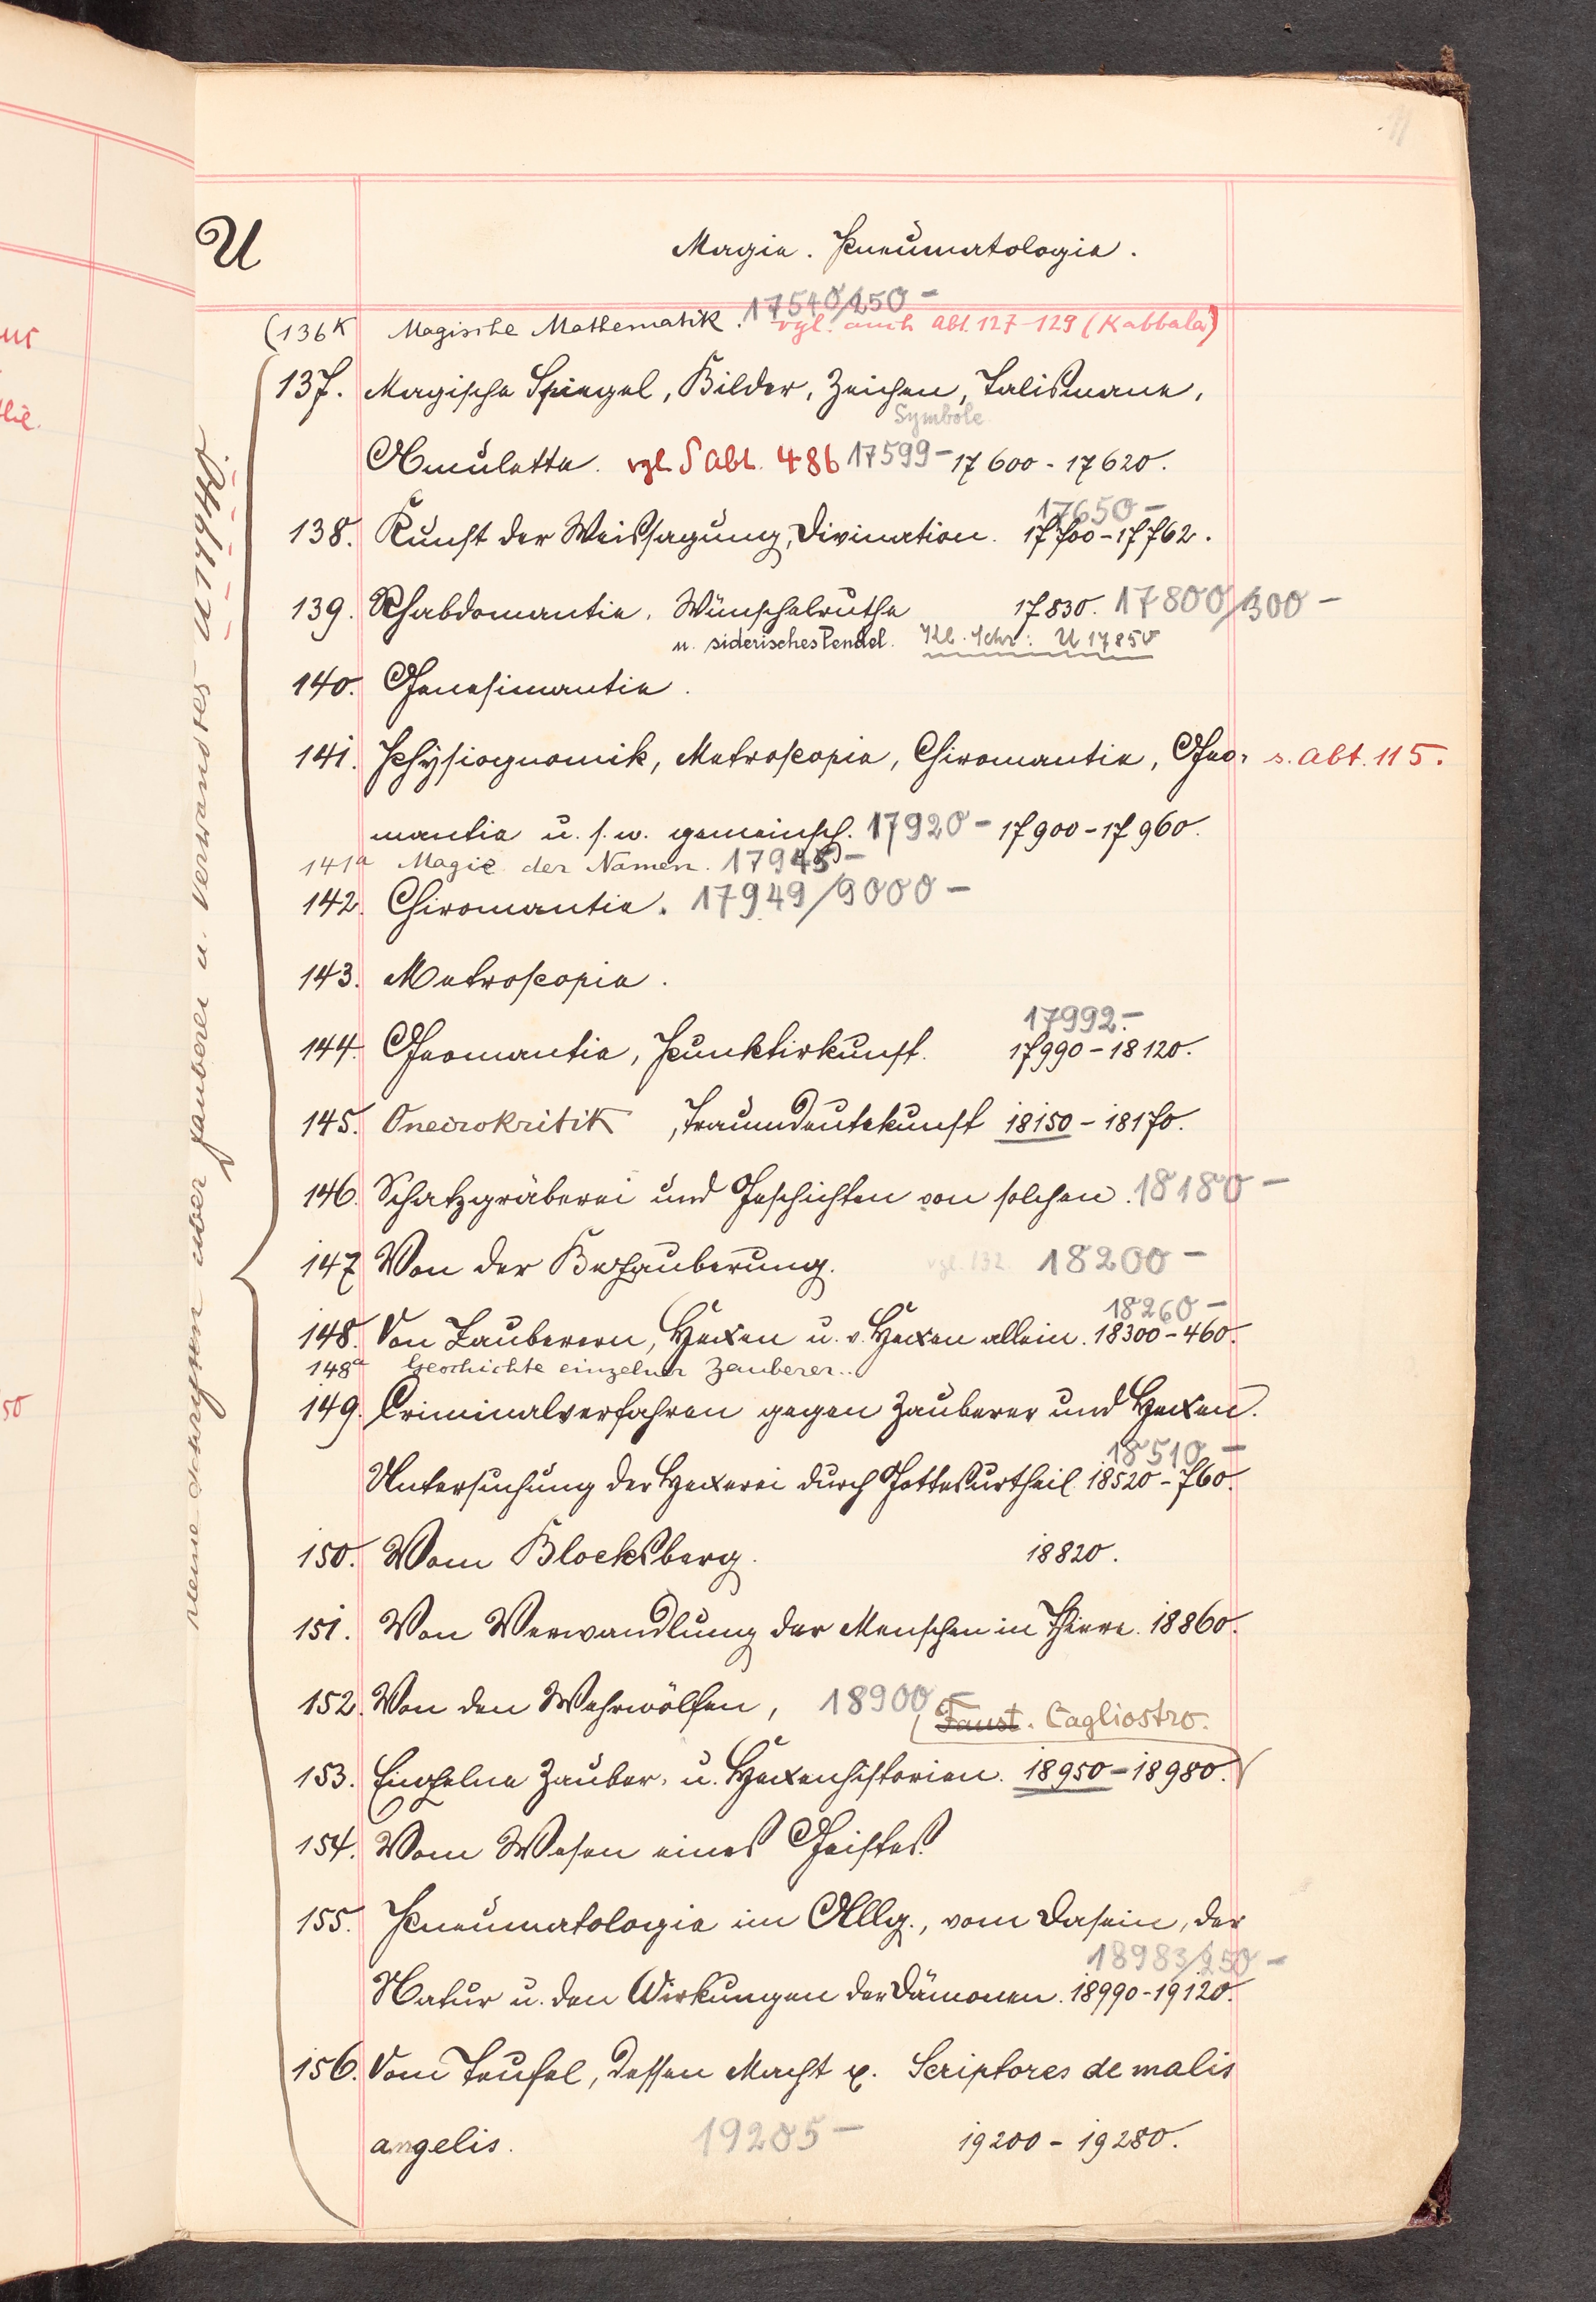 U
Magie. Pneumatologie.
17540/250 –
(136K Magische Mathematik. vgl. auch Abt. 127–129 (Kabbala)
137. Magische Spiegel, Bilder, Zeichen, Talismane,
Symbole
Amulette. vgl. S Abt. 486 17599 – 17600 - 17620.
17650 –
138. Kunst der Weissagung, Divination. 17700 - 17762.
139. Rhabdomantie, Wünschelruthe 17830. 17800/300 –
u. siderisches Pendel. Kl. Schr.: U 17850
140. Genesimantie.
141. Physiognomik, Metroskopie, Chiromantie, Geo- s. Abt. 115.
mantie u. s. w. gemeinsch. 17920 – 17900 - 17960.
141a Magie der Namen. 17945 –
142. Chiromantie. 17949/9000 –
143. Metroskopie.
17992. –
144. Geomantie, Punktirkunst. 17990 - 18120.
145. Oneirokritik, Traumdeutekunst 18150 - 18170.
146. Schatzgräberei und Geschichten von solchen. 18180 –
147. Von der Bezauberung. vgl. 132. 18200 –
18260 –
148. Von Zauberern, Hexen u. v. Hexen allein. 18300 - 460.
148a Geschichte einzelner Zauberer..
149. Criminalverfahren gegen Zauberer und Hexen.
18510 –
Untersuchung der Hexerei durch Gottesurtheil. 18520 - 760.
150. Vom Blocksberg. 18820.
151. Von Verwandlung der Menschen in Thiere. 18860.
152. Von den Wehrwölfen, 18900 –
Faust. Cagliostro.
153. Einzelne Zauber- u. Hexenhistorien. 18950 - 18980.
154. Vom Wesen eines Geistes.
155. Pneumatologie im Allg., vom Dasein, der
18983/250 –
Natur u. den Wirkungen der Dämonen. 18990 - 19120.
156. Vom Teufel, dessen Macht &. Scriptores de malis
angelis. 19205 – 19200 - 19280.
Kleine Schriften über Zauberei u. Verwandtes